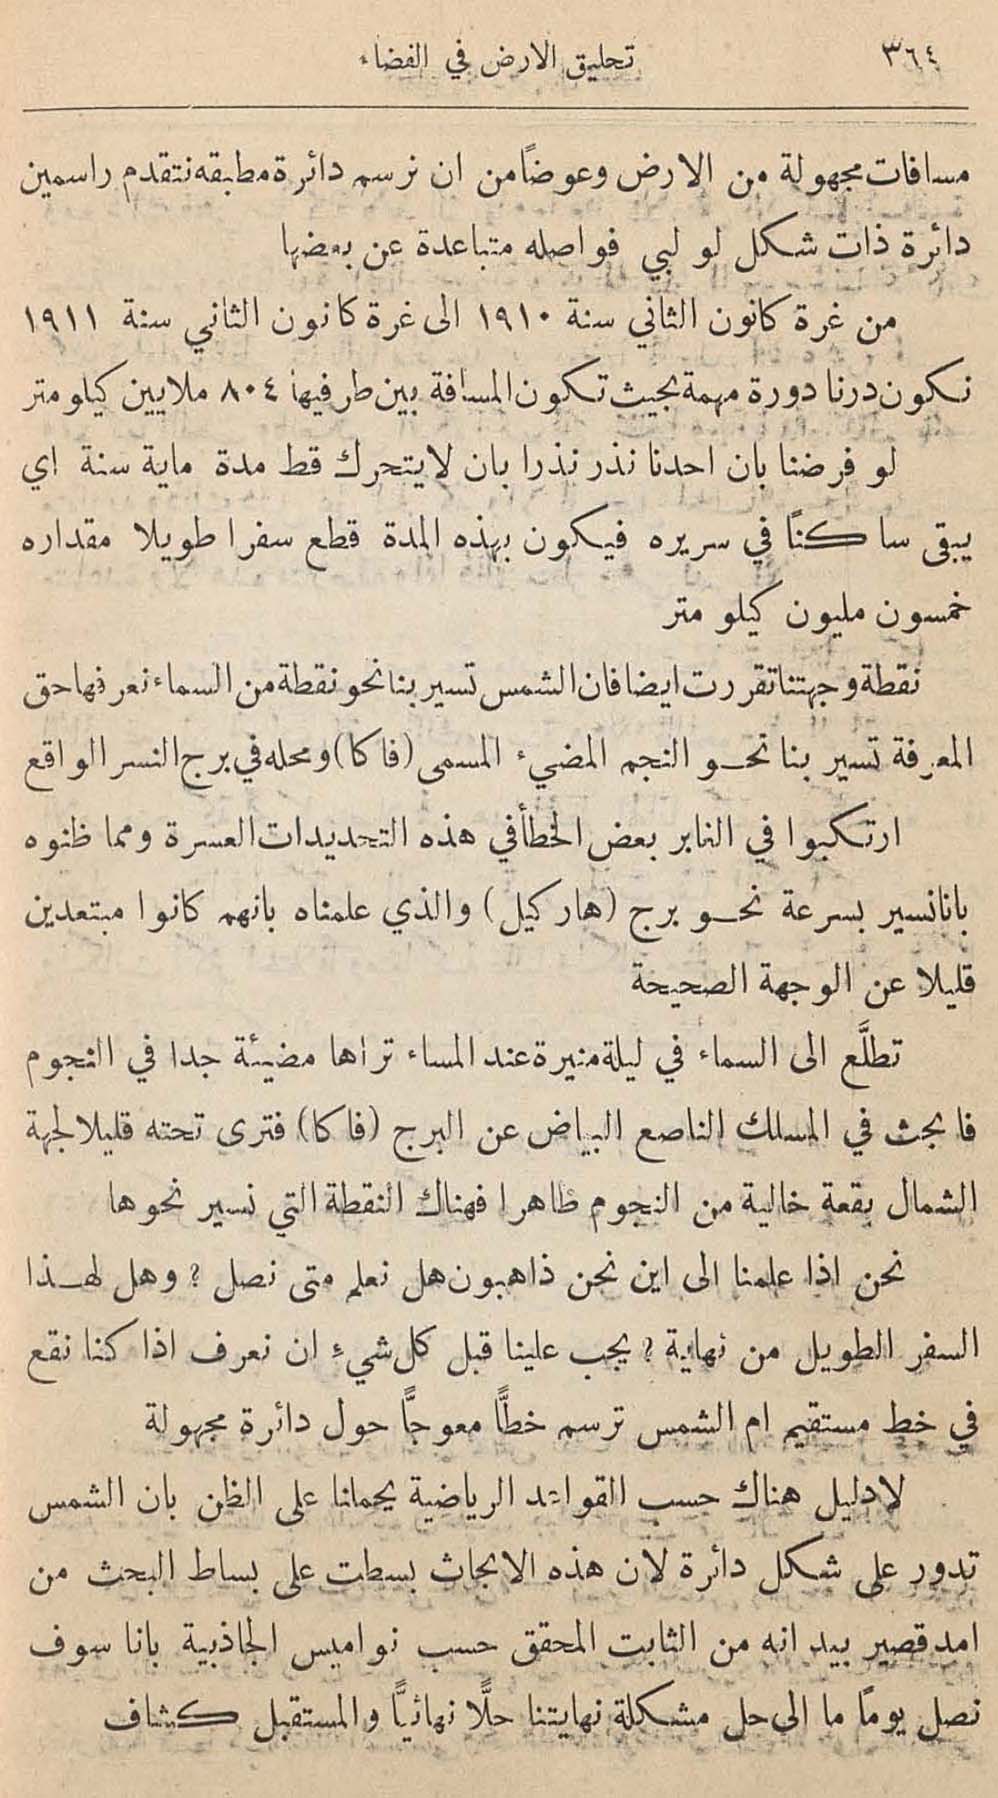 ٣٦٤ تحليق الارض في الفضاء
مسافات مجهولة من الارض وعوضاً من ان نرسم دائرة مطبقه نتقدم راسمين
دائرة ذات شكل لو لبي فواصله متباعدة عن بعضها
من غرة كانون الثاني سنة ١٩١٠ الى غرة كانون الثاني سنة ١٩١١
نكون درنا دورة مهمة بحيث تكون المسافة بين طرفيها ٨٠٤ ملايين كيلو متر
لو فرضنا بان احدنا نذر نذرا بان لا يتحرك قط مدة ماية سنة اي
يبقى ساكناً في سريره فيكون بهذه المدة قطع سفرا طويلا مقداره
خمسون مليون كيلو متر
نقطة وجهتنا تقررت ايضا فان الشمس تسير بنا نحو نقطة من السماء نعرفها حق
المعرفة تسير بنا نحو النجم المضيء المسمى (فاكا) ومحله في برج النسر الواقع
ارتكبوا في الغابر بعض الخطأ في هذه التحديدات العسرة ومما ظنوه
بانا نسير بسرعة نحو برج (هاركيل) والذي علمناه بانهم كانوا مبتعدين
قليلا عن الوجهة الصحيحة
تطلَّع الى السماء في ليلة منيرة عند المساء تراها مضيئة جدا في النجوم
فابحث في المسلك الناصع البياض عن البرج (فاكا) فترى تحته قليلا لجهة
الشمال بقعة خالية من النجوم ظاهرا فهناك النقطة التي نسير نحوها
نحن اذا علمنا الى اين نحن ذاهبون هل نعلم متى نصل ؟ وهل لهذا
السفر الطويل من نهاية ؟ يجب علينا قبل كل شيءِ ان نعرف اذا كنا نقع
في خط مستقيم ام الشمس ترسم خطًّا معوجًّا حول دائرة مجهولة
لا دليل هناك حسب القواعد الرياضية يحملنا على الظن بان الشمس
تدور على شكل دائرة لان هذه الابحاث بسطت على بساط البحث من
امد قصير بيد انه من الثابت المحقق حسب نواميس الجاذبية بانا سوف
نصل يوماً ما الى حل مشكلة نهايتنا حلًّا نهائيًّا والمستقبل كشاف